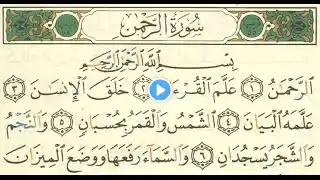 سُورَةُ الرَّحْمَٰن
بِسْمِ اللَّهِ الرَّحْمَٰنِ الرَّحِيمِ
الرَّحْمَٰنُ ١ عَلَّمَ الْقُرْءَانَ ٢ خَلَقَ الْإِنسَانَ ٣
عَلَّمَهُ الْبَيَانَ ٤ الشَّمْسُ وَالْقَمَرُ بِحُسْبَانٍ ٥ وَالنَّجْمُ
وَالشَّجَرُ يَسْجُدَانِ ٦ وَالسَّمَآءَ رَفَعَهَا وَوَضَعَ الْمِيزَانَ